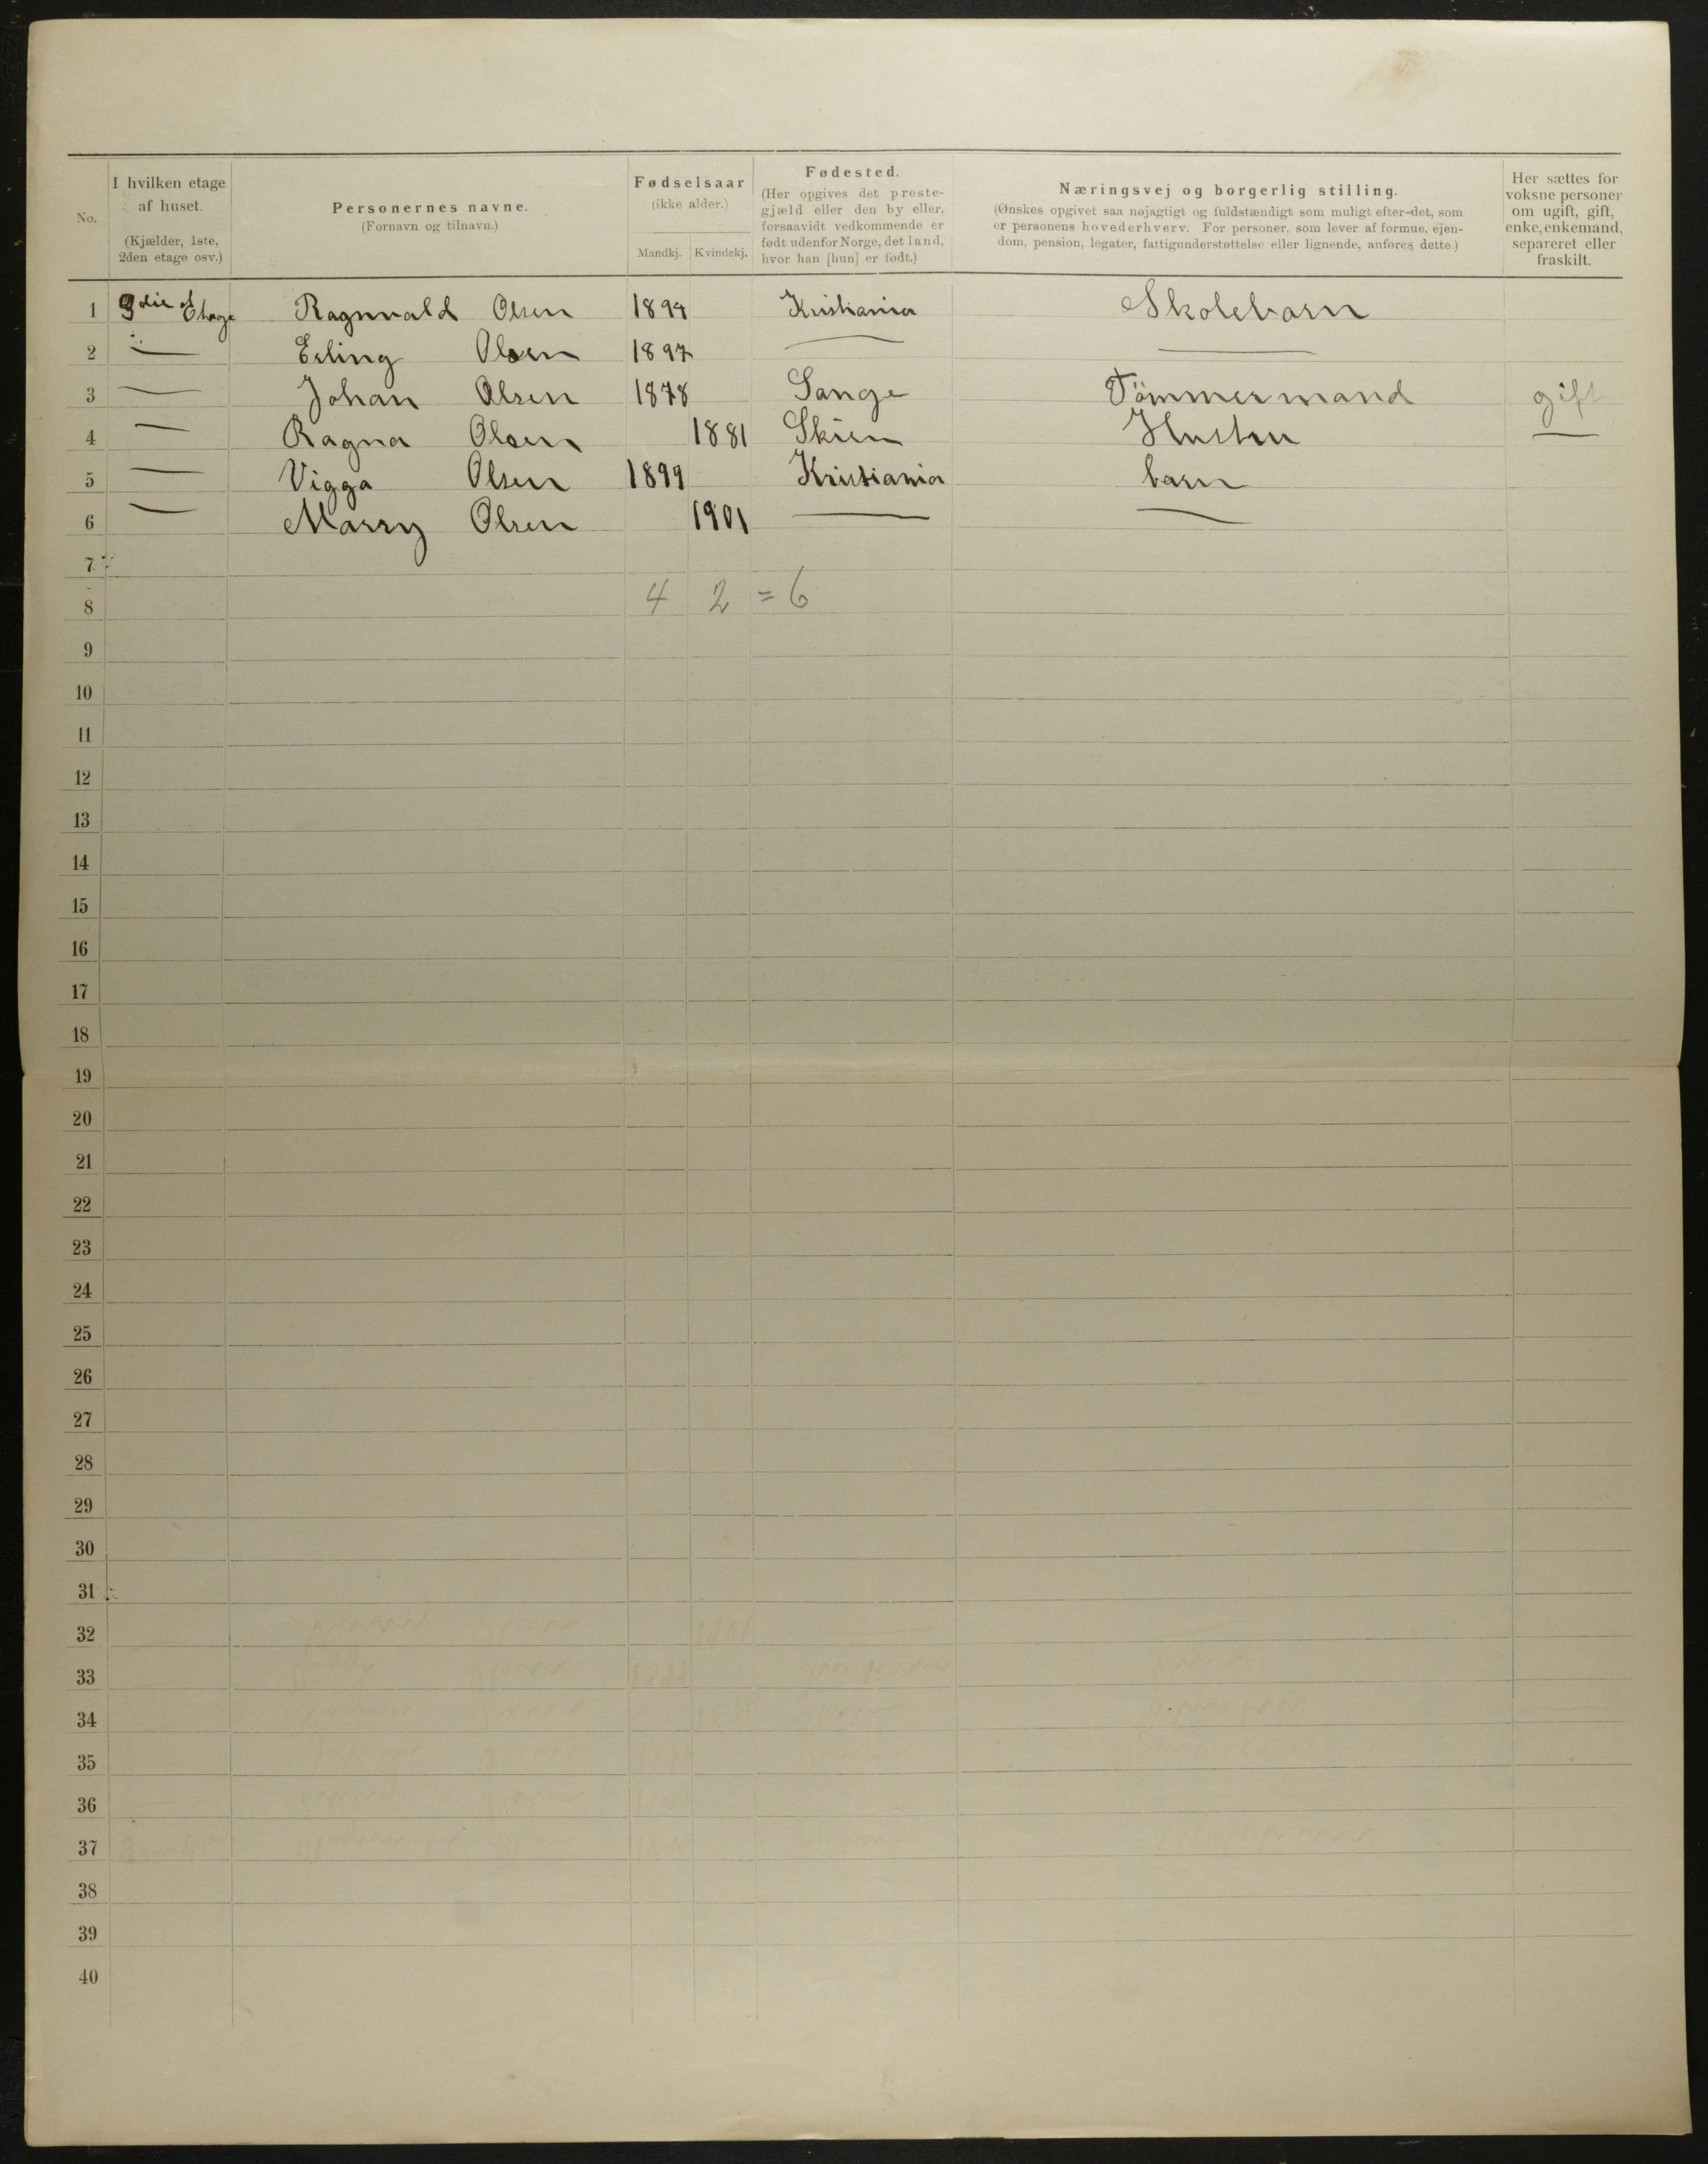 No.
I hvilken etage af huset. (Kjælder, 1ste, 2den etage osv.)
Personernes navne. (Fornavn og tilnavn.)
Fødselsaar (ikke alder.)
Mandkj. Kvindekj.
Fødested. (Her opgives det prestegjæld eller den by eller, forsaavidt vedkommende er født udenfor Norge, det land, hvor han [hun] er født.)
Næringsvej og borgerlig stilling.
(Ønskes opgivet saa nøjagtigt og fuldstændigt som muligt efter-det, som
er personens hovederhverv. For personer, som lever af formue, ejen-
dom, pension, legater, fattigunderstøttelse eller lignende, anføres dette.)
Her sættes for voksne personer om ugift, gift, enke, enkemand, separeret eller fraskilt.
1 3die Etage Ragnvald Olsen Kristiania Skolebarn
2 — Erling Olsen 1897 — —
3 — Johan Olsen 1878 Sange Tömmermand gift
4 — Ragna Olsen 1881 Skien Hustru —
5 — Vigga Olsen 1899 Kristiania barn
6 — Marry Olsen 1901 — —
7
8 4 2 = 6
9
10
11
12
13
14
15
16
17
18
19
20
21
22
23
24
25
26
27
28
29
30
31
32
33
34
35
36
37
38
39
40